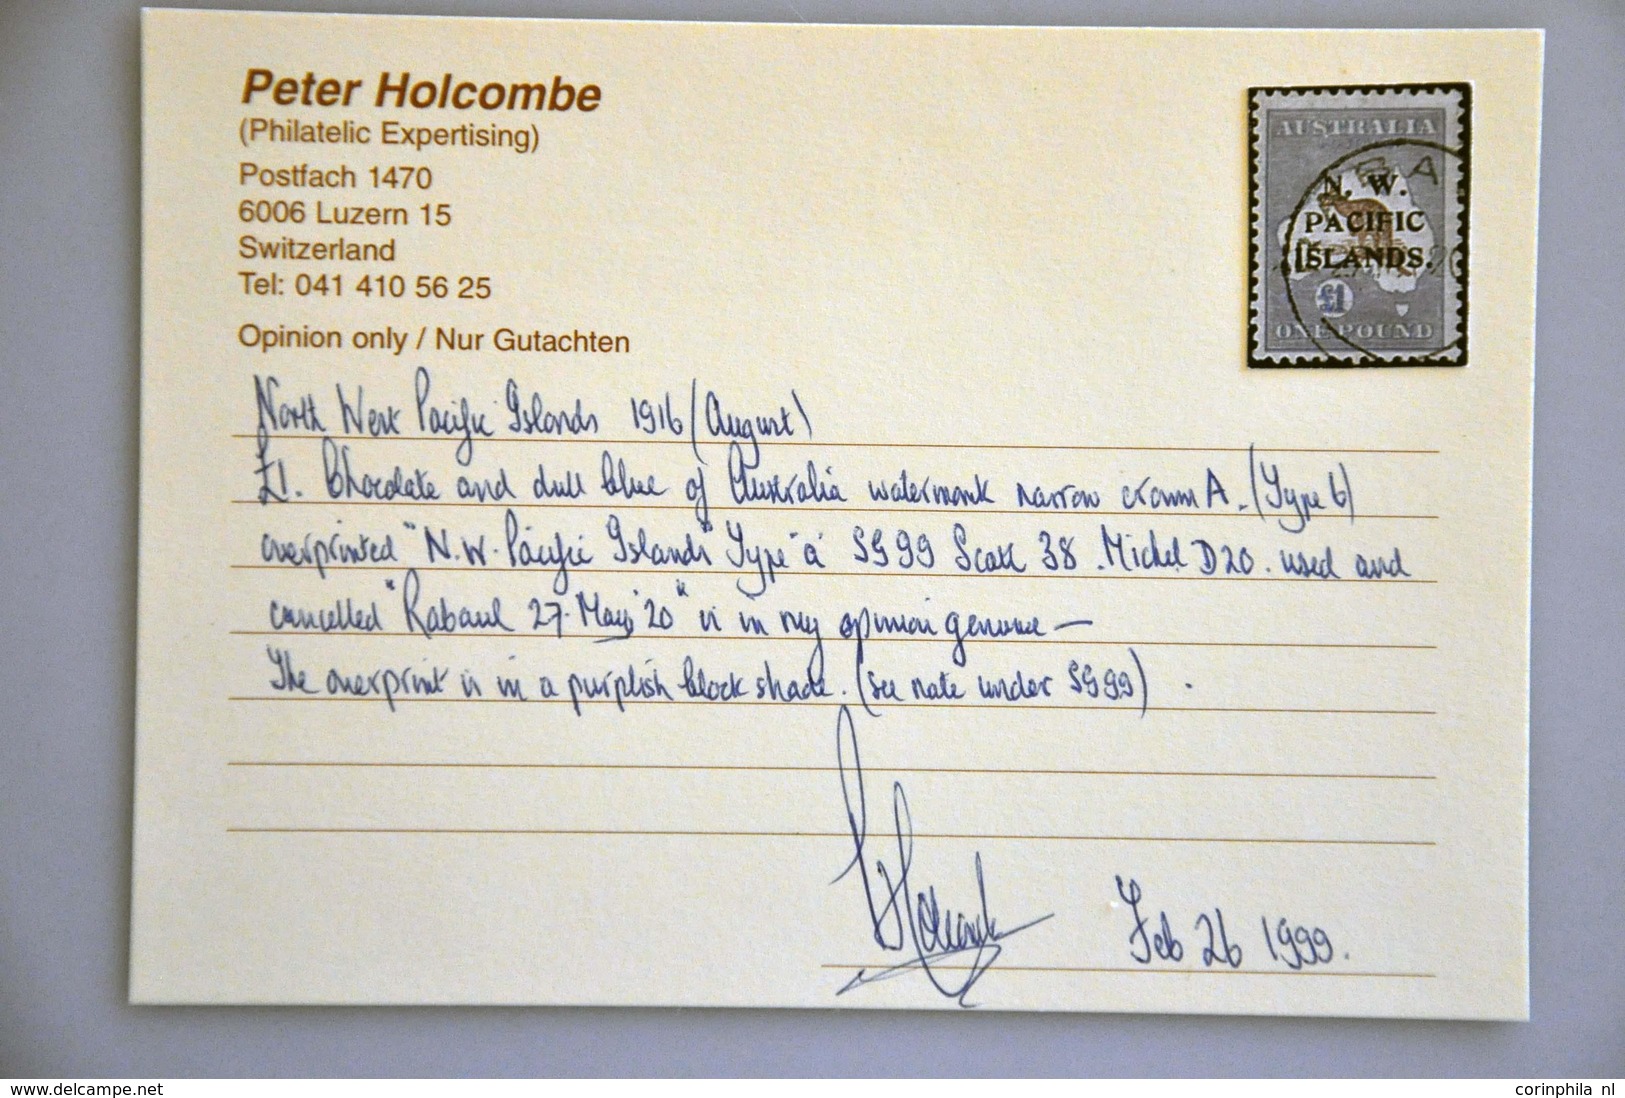 Peter Holcombe
(Philatelic Expertising)
Postfach 1470
6006 Luzern 15
Switzerland
Tel: 041 410 56 25
Opinion only / Nur Gutachten
AUSTRALIA
N. W.
PACIFIC
ISLANDS.
£1
ONE POUND
North West Pacific Islands 1916 (August)
£1. Chocolate and dull blue of Australia watermark narrow crown A. (Type 6)
overprinted "N.W. Pacific Islands" Type "a" SG 99 Scott 38. Michel D20. used and
cancelled "Rabaul 27. May '20" is in my opinion genuine —
The overprint is in a purplish black shade. (see note under SG 99).
Feb 26 1999.
www.delcampe.net
corinphila nl